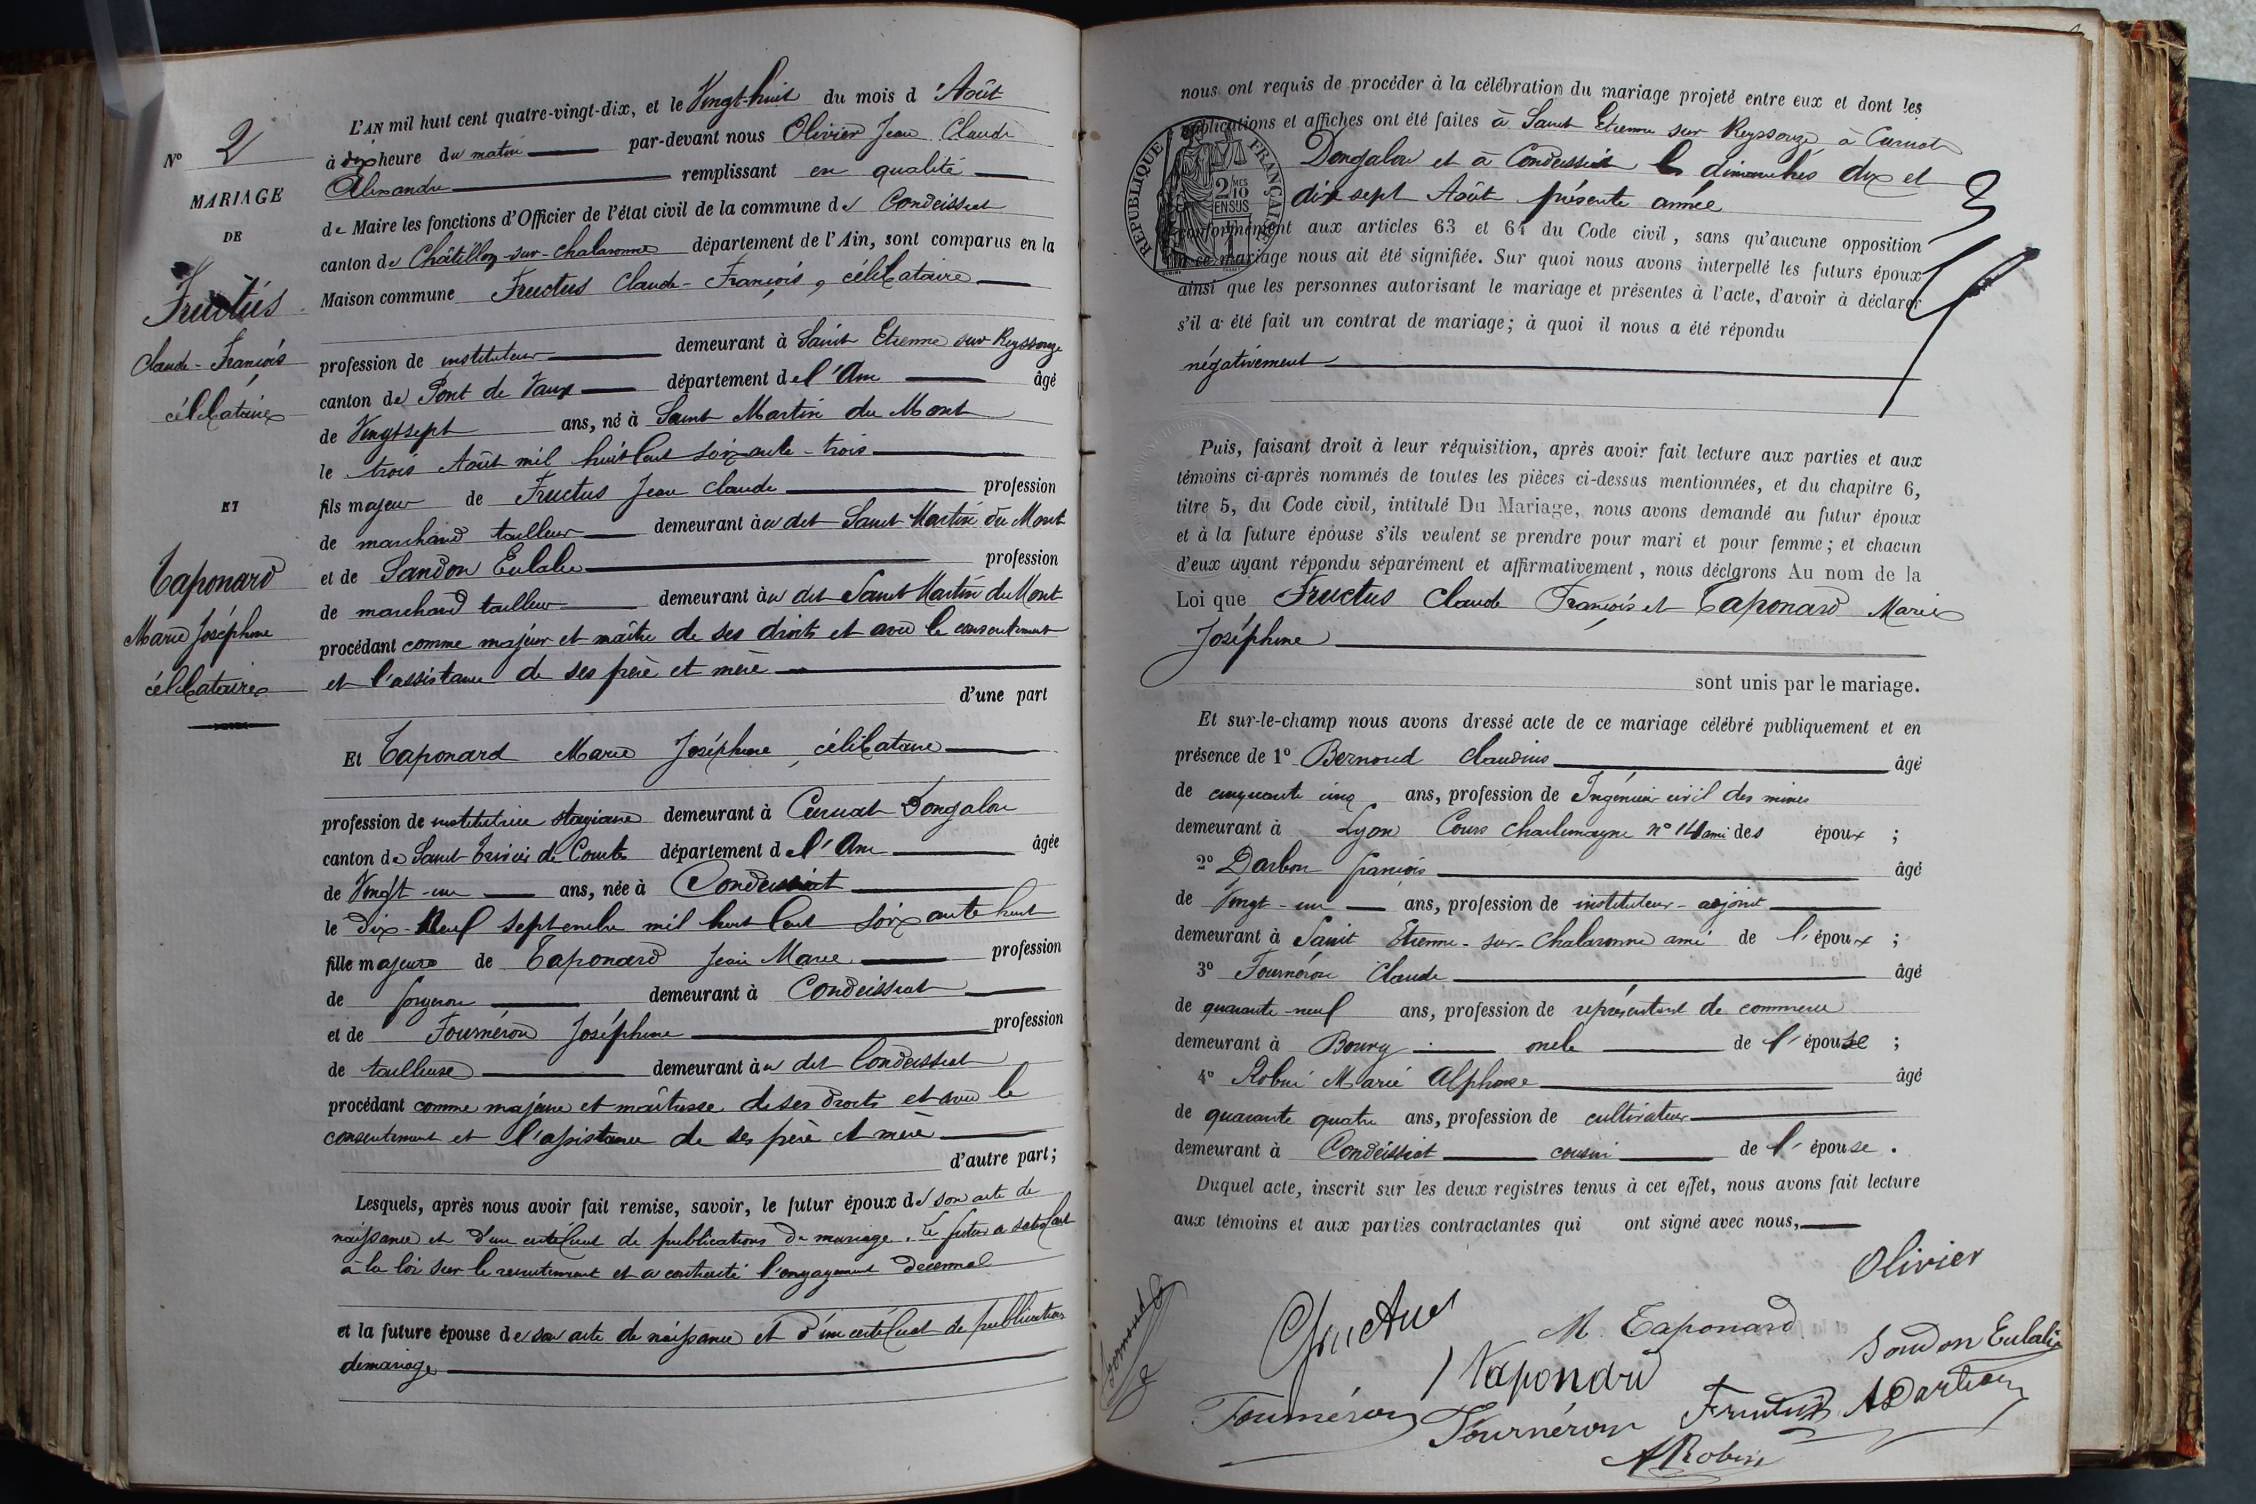 N° 2
MARIAGE
DE
Fructus
Claude-François
célibataire
ET
Taponard
Marie Joséphine
célibataire
L'AN mil huit cent quatre-vingt-dix, et le Vingt-huit du mois d'Août
à dix heure du matin par-devant nous Olivier Jean Claude
Alexandre remplissant en qualité
de Maire les fonctions d'Officier de l'état civil de la commune de Condeissiat
canton de Châtillon-sur-Chalaronne département de l'Ain, sont comparus en la
Maison commune Fructus Claude-François, célibataire
profession de instituteur demeurant à Saint Etienne sur Reyssouze
canton de Pont de Vaux département de l'Ain âgé
de Vingt sept ans, né à Saint Martin du Mont
le trois Août mil huit cent soixante-trois
fils majeur de Fructus Jean Claude profession
de marchand tailleur demeurant à u dit Saint Martin du Mont
et de Sandon Eulalie profession
de marchand tailleur demeurant à u dit Saint Martin du Mont
procédant comme majeur et maître de ses droits et avec le consentement
et l'assistance de ses père et mère
d'une part
Et Taponard Marie Joséphine, célibataire
profession de institutrice stagiaire demeurant à Curciat Dongalon
canton de Saint Trivier de Courtes département de l'Ain âgée
de Vingt-un ans, née à Condeissiat
le dix-neuf septembre mil huit cent soixante huit
fille majeure de Taponard Jean Marie profession
de forgeron demeurant à Condeissiat
et de Fournéron Joséphine profession
de tailleuse demeurant à u dit Condeissiat
procédant comme majeure et maîtresse de ses droits et avec le
consentement et l'assistance de ses père et mère
d'autre part;
Lesquels, après nous avoir fait remise, savoir, le futur époux de son acte de
naissance et d'un certificat de publications de mariage. Le futur a satisfait
à la loi sur le recrutement et a contracté l'engagement décennal
et la future épouse de son acte de naissance et d'un certificat de publications
de mariage
nous ont requis de procéder à la célébration du mariage projeté entre eux et dont les
publications et affiches ont été faites à Saint Etienne sur Reyssouze, à Curciat
Dongalon et à Condeissiat les dimanches dix et
dix sept Août présente année
RÉPUBLIQUE FRANÇAISE
2 MES
10
EN SUS
conformément aux articles 63 et 64 du Code civil, sans qu'aucune opposition
à ce mariage nous ait été signifiée. Sur quoi nous avons interpellé les futurs époux
ainsi que les personnes autorisant le mariage et présentes à l'acte, d'avoir à déclarer
s'il a été fait un contrat de mariage; à quoi il nous a été répondu
négativement
Puis, faisant droit à leur réquisition, après avoir fait lecture aux parties et aux
témoins ci-après nommés de toutes les pièces ci-dessus mentionnées, et du chapitre 6,
titre 5, du Code civil, intitulé Du Mariage, nous avons demandé au futur époux
et à la future épouse s'ils veulent se prendre pour mari et pour femme; et chacun
d'eux ayant répondu séparément et affirmativement, nous déclarons Au nom de la
Loi que Fructus Claude François et Taponard Marie
Joséphine
sont unis par le mariage.
Et sur-le-champ nous avons dressé acte de ce mariage célébré publiquement et en
présence de 1° Bernoud Claudius âgé
de cinquante cinq ans, profession de Ingénieur civil des mines
demeurant à Lyon Cours Charlemagne n° 14 ami des époux ;
2° Darbon François âgé
de Vingt-un ans, profession de instituteur-adjoint
demeurant à Saint Etienne-sur-Chalaronne ami de l'époux ;
3° Fournéron Claude âgé
de quarante-neuf ans, profession de représentant de commerce
demeurant à Bourg oncle de l'épouse ;
4° Robin Marie Alphonse âgé
de quarante quatre ans, profession de cultivateur
demeurant à Condeissiat cousin de l'épouse.
Duquel acte, inscrit sur les deux registres tenus à cet effet, nous avons fait lecture
aux témoins et aux parties contractantes qui ont signé avec nous,
Olivier
Cfructus
M. Taponard
Sandon Eulalie
Bernoud
Taponard
Fournéron
Fournéron
Fructus
A Robin